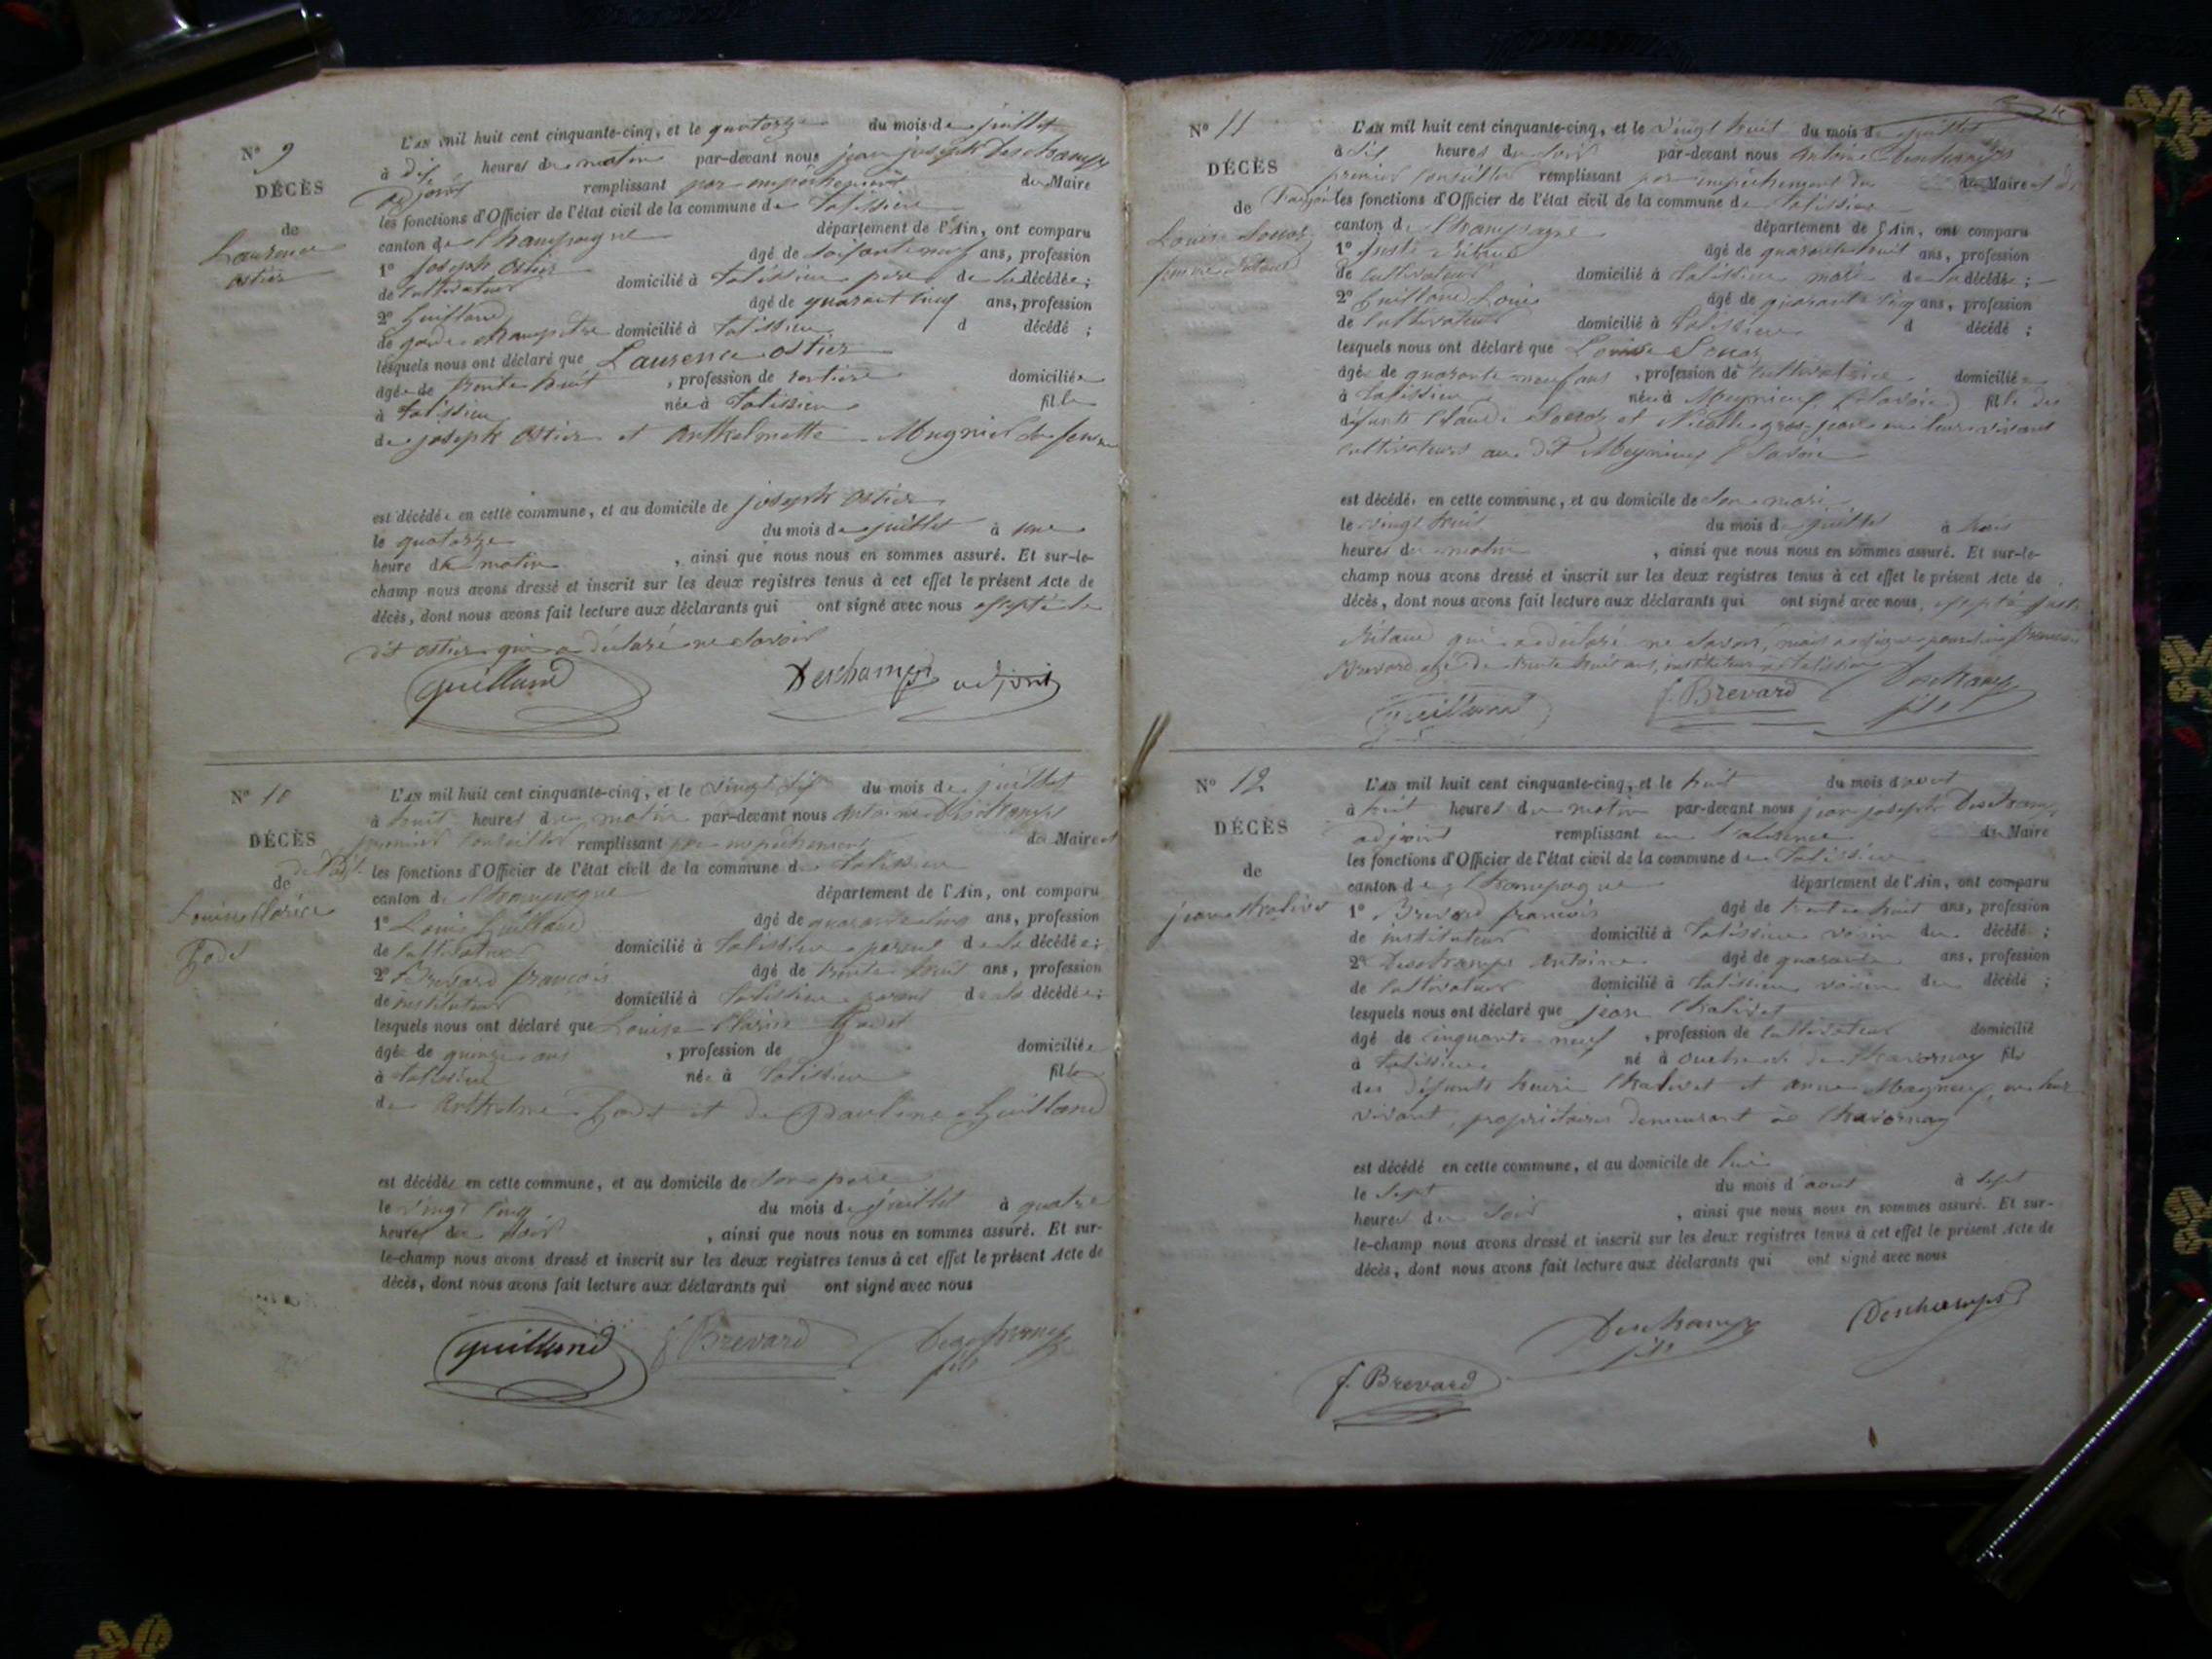 N° 9
DÉCÈS
de
Laurence
ostier
L'AN mil huit cent cinquante-cinq, et le quatorze du mois de juillet
à dix heures du matin par-devant nous jean joseph Deschamps
adjoint remplissant par empêchement du Maire
les fonctions d'Officier de l'état civil de la commune de talissieu
canton de Champagne département de l'Ain, ont comparu
1° joseph ostier âgé de soixante neuf ans, profession
de cultivateur domicilié à talissieu père de la décédée ;
2° Guilland âgé de quarant cinq ans, profession
de garde champetre domicilié à talissieu d décédé ;
lesquels nous ont déclaré que Laurence ostier
âgée de trente huit , profession de domiciliée
à talissieu née à talissieu fille
de joseph ostier et Anthelmette Mugnier
est décédée en cette commune, et au domicile de joseph ostier
le quatorze du mois de juillet à une
heure du matin , ainsi que nous nous en sommes assuré. Et sur-le-
champ nous avons dressé et inscrit sur les deux registres tenus à cet effet le présent Acte de
décès, dont nous avons fait lecture aux déclarants qui ont signé avec nous excepté le
dit ostier qui a déclaré ne savoir
Guilland Deschamps adjoint
N° 10
DÉCÈS
de
Louise Clarice
Godet
L'AN mil huit cent cinquante-cinq, et le vingt six du mois de juillet
à huit heures du matin par-devant nous Antoine Deschamps
premier conseiller remplissant par empêchement du Maire et
les fonctions d'Officier de l'état civil de la commune de talissieu
canton de Champagne département de l'Ain, ont comparu
1° Louis Guilland âgé de quarante cinq ans, profession
de cultivateur domicilié à talissieu parent de la décédée ;
2° Brevard françois âgé de trente huit ans, profession
de instituteur domicilié à talissieu parent de la décédée ;
lesquels nous ont déclaré que Louise Clarice Godet
âgée de quinze ans , profession de domiciliée
à talissieu née à talissieu fille
de Anthelme Godet et de Pauline Guilland
est décédée en cette commune, et au domicile de son père
le vingt cinq du mois de juillet à quatre
heures du soir , ainsi que nous nous en sommes assuré. Et sur-
le-champ nous avons dressé et inscrit sur les deux registres tenus à cet effet le présent Acte de
décès, dont nous avons fait lecture aux déclarants qui ont signé avec nous
Guilland f. Brevard Deschamps
fils
N° 11
DÉCÈS
de
Louise
femme
L'AN mil huit cent cinquante-cinq, et le vingt huit du mois de juillet
à six heures du soir par-devant nous Antoine Deschamps
premier conseiller remplissant par empêchement du Maire et de
l'adjoint les fonctions d'Officier de l'état civil de la commune de talissieu
canton de Champagne département de l'Ain, ont comparu
1° juste âgé de quarante huit ans, profession
de cultivateur domicilié à talissieu mari de la décédée ;
2° Guilland Louis âgé de quarante cinq ans, profession
de cultivateur domicilié à talissieu d décédé ;
lesquels nous ont déclaré que Louise
âgée de quarante neuf ans , profession de cultivatrice domiciliée
à talissieu née à (Savoie) fille des
défunts Claude et en leur vivant
cultivateurs au dit Savoie
est décédée en cette commune, et au domicile de son mari
le vingt huit du mois de juillet à trois
heures du matin , ainsi que nous nous en sommes assuré. Et sur-le-
champ nous avons dressé et inscrit sur les deux registres tenus à cet effet le présent Acte de
décès, dont nous avons fait lecture aux déclarants qui ont signé avec nous, excepté juste
qui a déclaré ne savoir, mais a signé pour lui françois
Brevard agé de trente huit ans, instituteur à talissieu
Guilland f. Brevard Deschamps
fils
N° 12
DÉCÈS
de
jean Chalivet
L'AN mil huit cent cinquante-cinq, et le huit du mois d'aout
à huit heures du matin par-devant nous jean joseph Deschamps
adjoint remplissant en l'absence du Maire
les fonctions d'Officier de l'état civil de la commune de talissieu
canton de Champagne département de l'Ain, ont comparu
1° Brevard françois âgé de trente huit ans, profession
de instituteur domicilié à talissieu voisin du décédé ;
2° Deschamps Antoine âgé de quarante ans, profession
de cultivateur domicilié à talissieu voisin du décédé ;
lesquels nous ont déclaré que jean Chalivet
âgé de cinquante neuf , profession de cultivateur domicilié
à talissieu né à de Chavornay fils
des défunts henri Chalivet et anne en leur
vivant, propriétaires demeurant à Chavornay
est décédé en cette commune, et au domicile de lui
le sept du mois d'aout à sept
heures du soir , ainsi que nous nous en sommes assuré. Et sur-
le-champ nous avons dressé et inscrit sur les deux registres tenus à cet effet le présent Acte de
décès, dont nous avons fait lecture aux déclarants qui ont signé avec nous
Deschamps
fils
Deschamps
f. Brevard